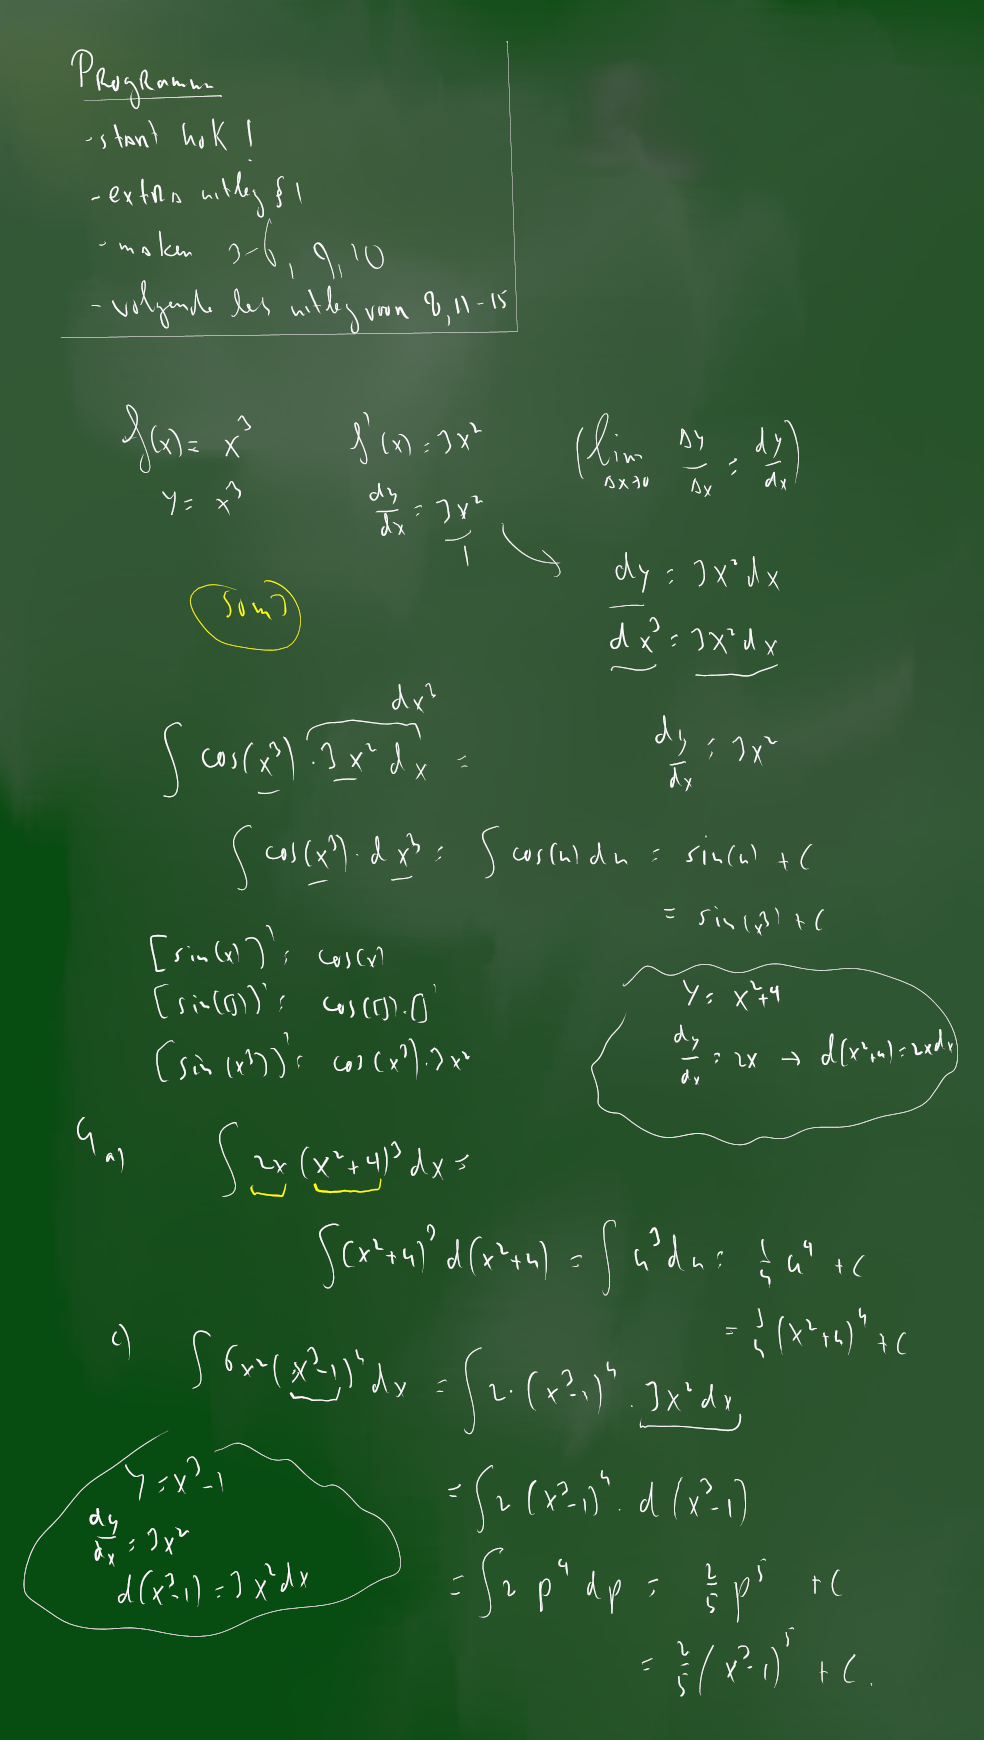 Programma
- start hok !
- extra uitleg § 1
- maken 3-6, 9, 10
- volgende les uitleg voor 8, 11-15
f(x) = x³ f'(x) = 3x² (lim Δx→0 Δy/Δx = dy/dx)
y = x³ dy/dx = 3x²/1
dy = 3x² dx
som 3
dx³ = 3x² dx
dx³
∫ cos(x³) · 3x² dx =
dy/dx = 3x²
∫ cos(x³) · dx³ = ∫ cos(u) du = sin(u) + C
= sin(x³) + C
[sin(x)]' = cos(x)
[sin([])]' = cos([]) · []'
[sin(x³)]' = cos(x³) · 3x²
y = x²+4
dy/dx = 2x → d(x²+4) = 2x dx
4 a) ∫ 2x (x²+4)³ dx =
∫ (x²+4)³ d(x²+4) = ∫ u³ du = 1/4 u⁴ + C
= 1/4 (x²+4)⁴ + C
c) ∫ 6x² (x³-1)⁴ dx = ∫ 2 · (x³-1)⁴ · 3x² dx
y = x³-1
dy/dx = 3x²
d(x³-1) = 3x² dx
= ∫ 2 (x³-1)⁴ · d(x³-1)
= ∫ 2 p⁴ dp = 2/5 p⁵ + C
= 2/5 (x³-1)⁵ + C.